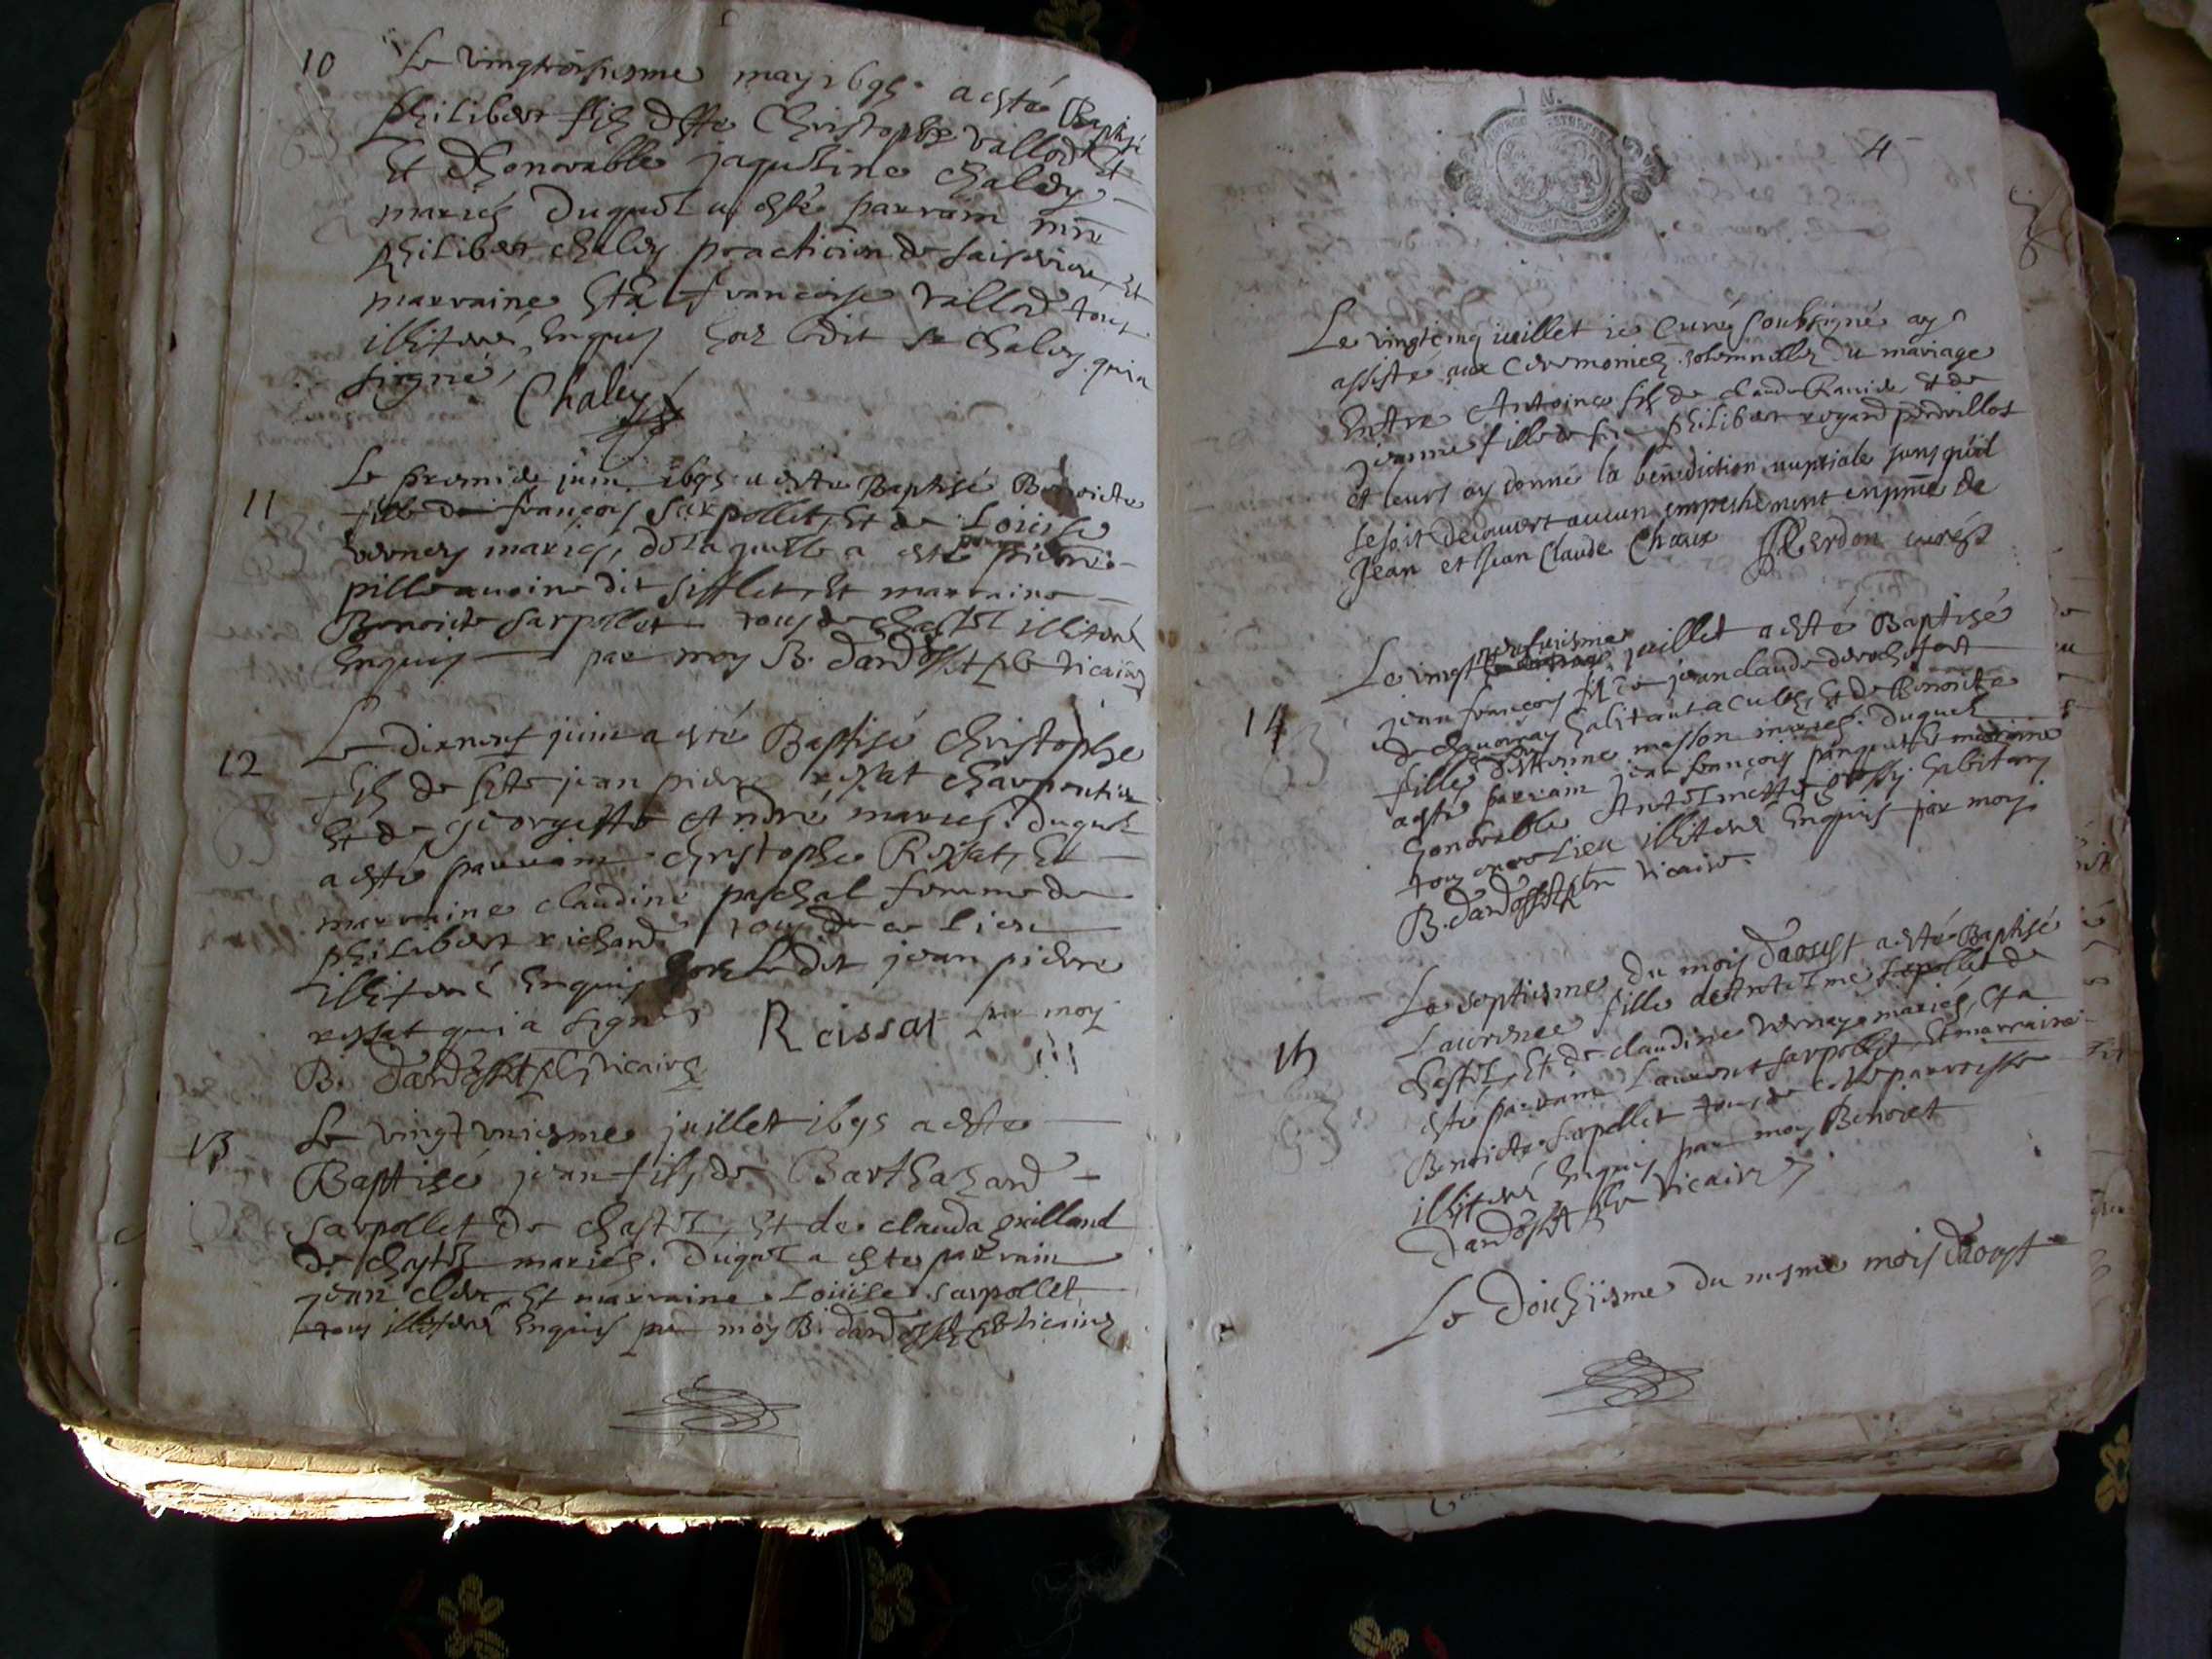 10 Le vingtroisiesme may 1695. a esté Baptisé
philibert fils d'hte Christophe vallod
Et d'honorable jaqueline chaley
mariés Duquel a esté parrain mre
philibert chaley practicien de
marraine hta francoise vallod tous
illiterés Enquis hors ledit sr chaley qui a
signé,
Chaley
11 Le premier juin 1695 a esté Baptisé Benoiste
fille de françois Sarpollet, Et de Loüise
verney mariés, de laquelle a esté pierre
dit sifflet, Et marraine
Benoiste sarpollet tous de chastel illiterés
Enquis par moy B. vicaire
12 Le dixneuf juin a esté Baptisé christophe
fils de hte jean pierre reyssat charpentier
Et de georgette André mariés. duquel
a esté parrain christophe Reyssat, Et
marraine claudine paschal femme de
philibert richard tous de ce lieu
illiterés Enquis hors Ledit jean pierre
reyssat qui a signé Reissat par moy
B. vicaire
13 Le vingt uniesme juillet 1695 a esté
Baptisé jean fils de Barthazard
sarpollet de chastel, Et de clauda guilland
de chastel mariés. Duquel a esté parrain
jean cler, Et marraine Loüise sarpollet
tous illiterés Enquis par moy B. vicaire
4
Le vingtcinq juillet je curé soubsigné ay
assisté aux ceremonies solemnelles du mariage
Entre Antoine fils de claude Et de
jeanne fille de feu philibert
et leurs ay donné la bénediction nuptiale sans qu'il
se soit decouvert aucun empeschement en pnce de
Jean et Jean Claude Chaux Perdon curé
Le vingt neufiesme juillet a esté Baptisé
14 jean françois fils de jean claude derochefort
de habitant a Et de Benoiste
fille d'Estienne masson mariés. duquel
a esté parrain jean françois Et marraine
honorable habitans
tous illiterés Enquis par moy
B. vicaire.
Le septiesme du mois d'aoust a esté Baptisé
15 Laurence fille de sarpollet de
chastel, Et de claudine verney mariés, Et a
esté parrain Laurent sarpollet Et marraine
Benoiste sarpollet tous de cette parroisse
illiterés Enquis par moy Benoict
vicaire
Le doiziesme du mesme mois d'aoust